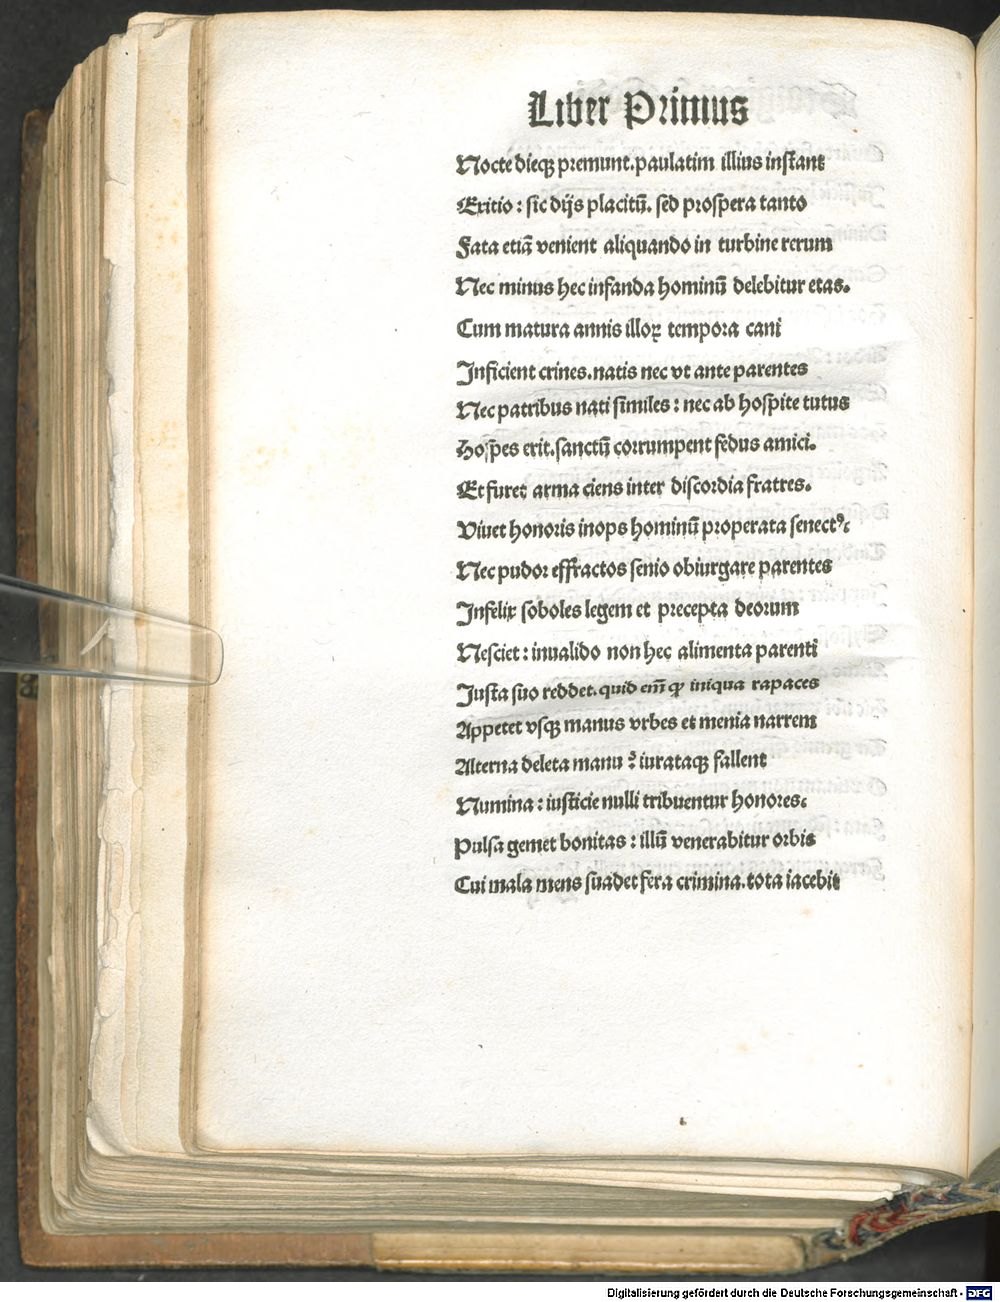 Liber Primus
Nocte dieqꝫ premunt. paulatim illius instant
Exitio : sic dijs placitū. sed prospera tanto
Fata etiā venient aliquando in turbine rerum
Nec minus hec infanda hominū delebitur etas.
Cum matura annis illoꝝ tempora cani
Inficient crines. natis nec vt ante parentes
Nec patribus nati similes : nec ab hospite tutus
Hospes erit. sanctū corrumpent fedus amici.
Et furet arma ciens inter discordia fratres.
Viuet honoris inops hominū properata senectꝰ
Nec pudor effractos senio obiurgare parentes
Infelix soboles legem et precepta deorum
Nesciet : inualido non hec alimenta parenti
Justa suo reddet. quid em̄ ꝙ iniqua rapaces
Appetet vsqꝫ manus vrbes et menia narrem
Alterna deleta manu ? iurataqꝫ fallent
Numina : iusticie nulli tribuentur honores.
Pulsa gemet bonitas : illū venerabitur orbis
Cui mala mens suadet fera crimina. tota iacebit
Digitalisierung gefördert durch die Deutsche Forschungsgemeinschaft - DFG